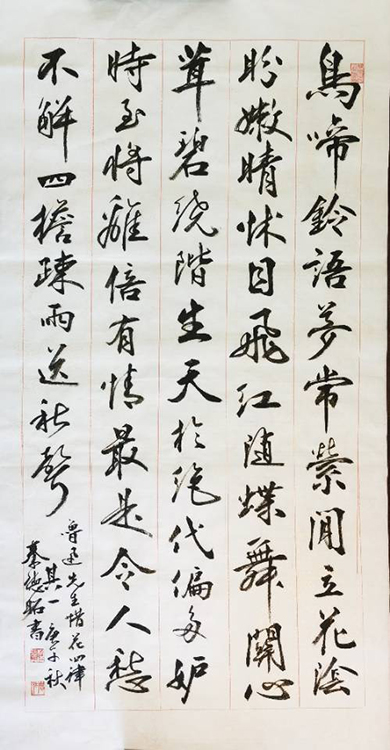 鳥啼鈴語夢常縈閒立花陰
盼嫩晴怵目飛紅随蝶舞關心
茸碧繞階生天於絕代偏多妒
時至將離倍有情最是令人愁
不解四檐疎雨送秋聲
魯迅先生惜花四律
其一 庚子秋
秦德昭書